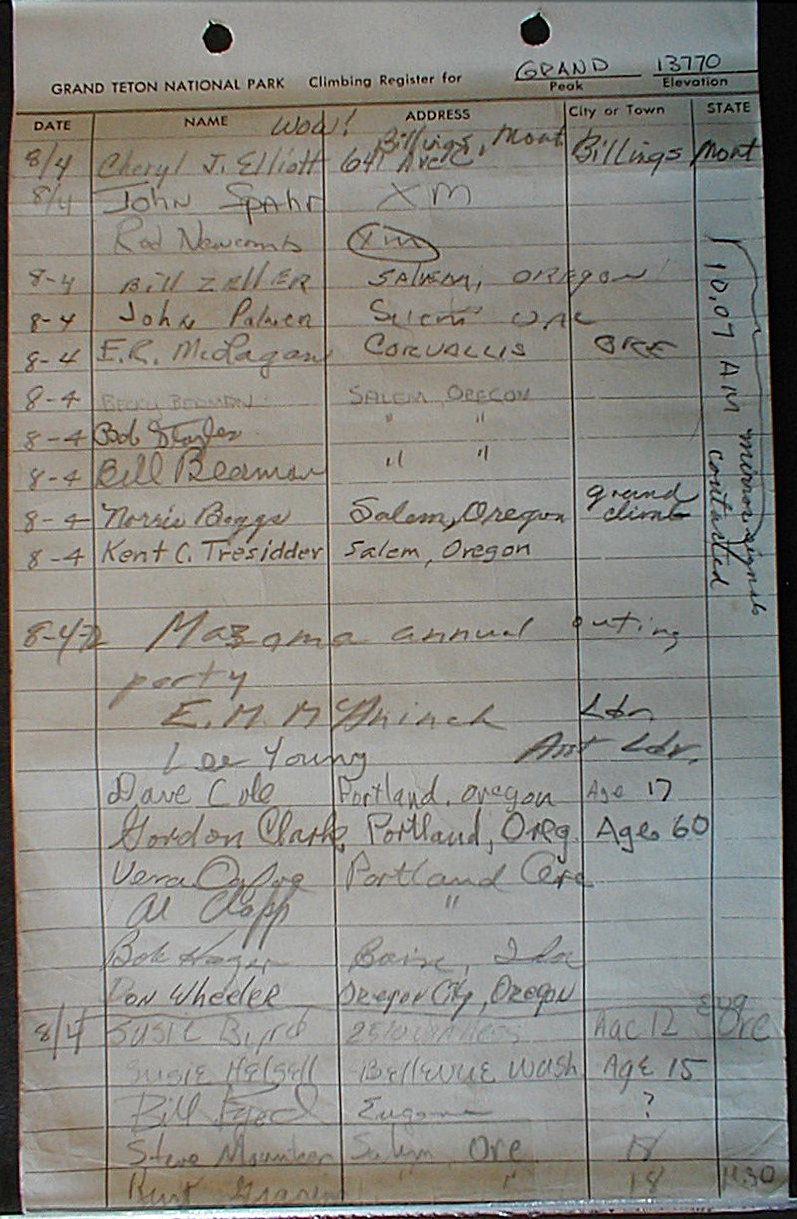 GRAND 13770
GRAND TETON NATIONAL PARK Climbing Register for Peak Elevation
DATE NAME ADDRESS City or Town STATE
Wow! Billings, Mont
8/4 Cheryl J. Elliott 641 Ave C Billings Mont
8/4 John Spahr XM
Rod Newcomb XM
8-4 Bill Zeller Salem, Oregon
8-4 John Palmen
8-4 E.R. McLagan Corvallis Ore
8-4 Becky Bedman Salem, Oregon
8-4 Bob " "
8-4 Bill Beaman " "
8-4 Norris Boggs Salem, Oregon grand climb
8-4 Kent C. Tresidder Salem, Oregon
10,07 AM mirror signals contacted
8-4-72 Mazama annual outing
party
E. M. Ldr.
Lee Young Asst Ldr.
Dave Cole Portland, oregon Age 17
Gordon Clark, Portland, Oreg. Age 60
Vera Portland Ore
Al Clapp "
Bob Boise, Ida
Don Wheeler Oregon City, Oregon
Eug
8/4 Susie Byrd Age 12 Ore
Susie Helsell Bellevue Wash Age 15
Bill Byrd Eugene ?
Steve Ore 18
Kurt " 18 11:30